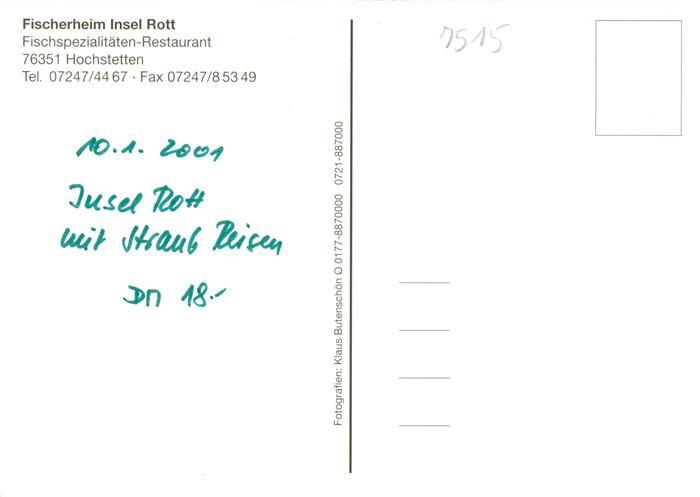 Fischerheim Insel Rott
Fischspezialitäten-Restaurant
76351 Hochstetten
Tel. 07247/44 67 · Fax 07247/8 53 49
7515
10.1. 2001
Insel Rott
mit Straub Reisen
DM 18.-
Fotografien: Klaus Butenschön Q 0177-8870000 0721-887000